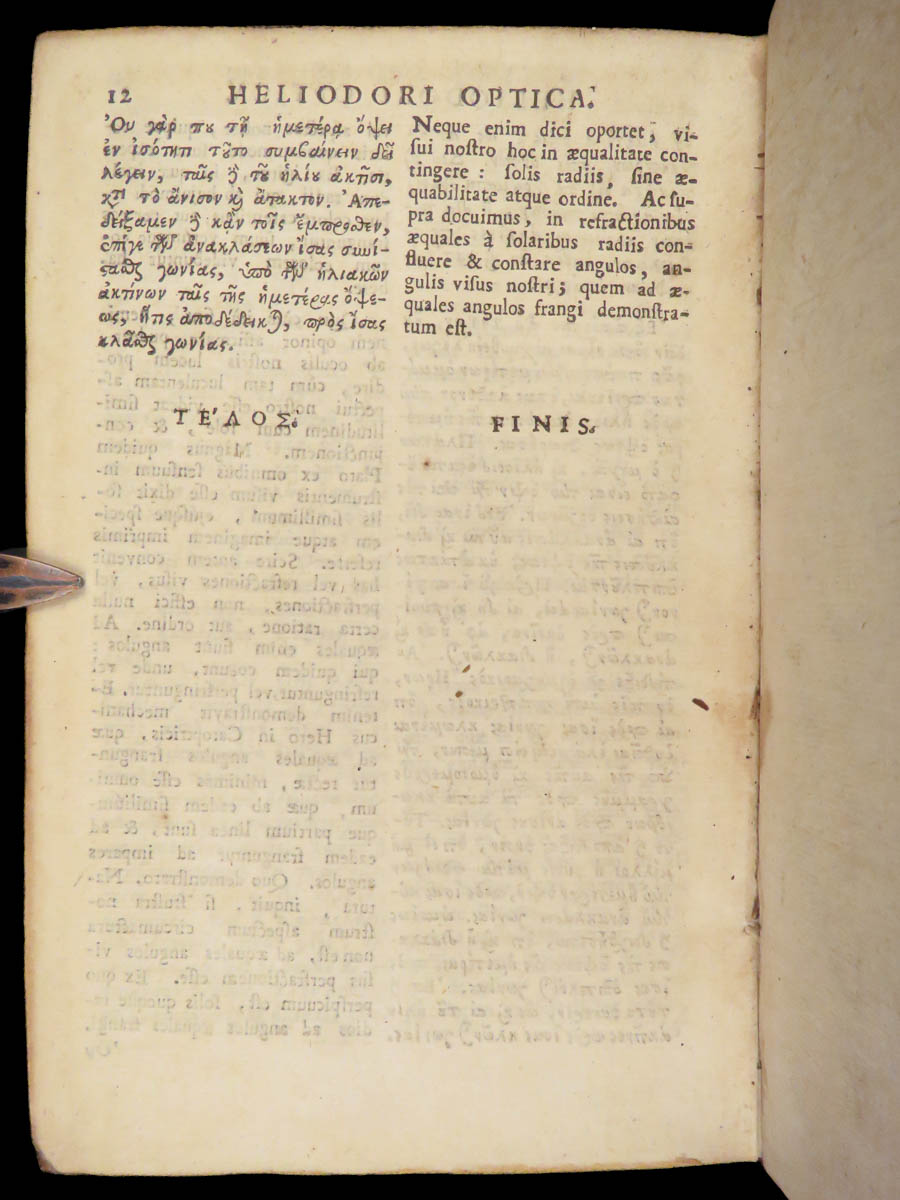 12 HELIODORI OPTICA.
Ὀυ γὰρ που τῇ ἡμετέρᾳ ὄψει
ἐν ἰσότητι τοῦτο συμβαίνειν δεῖ
λέγειν, ταῖς ἢ τοῦ ἡλίου ἀκτῆσι,
κατὰ τὸ ἄνισον καὶ ἄτακτον. Ἀπε-
δείξαμεν ἢ κἀν τοῖς ἔμπροσθεν,
ἐπί γε τῶν ἀνακλάσεων ἴσας συνί-
στασθαι γωνίας, ὑπὸ τῶν ἡλιακῶν
ἀκτίνων ταῖς τῆς ἡμετέρας ὄψε-
ως, ἥτις ἀποδέδεικται, πρὸς ἴσας
κλᾶσθαι γωνίας.
ΤΕ´ΛΟΣ.
Neque enim dici oportet, vi-
sui nostro hoc in æqualitate con-
tingere : solis radiis, sine æ-
quabilitate atque ordine. Ac su-
pra docuimus, in refractionibus
æquales à solaribus radiis con-
fluere & constare angulos, an-
gulis visus nostri; quem ad æ-
quales angulos frangi demonstra-
tum est.
FINIS.